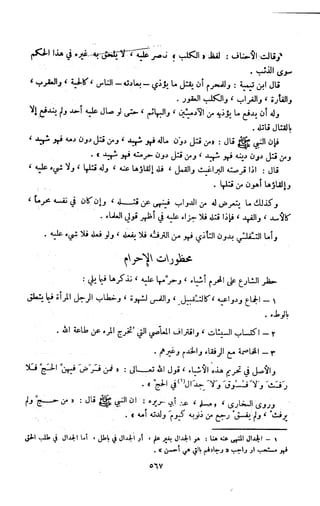 وقالت الأحناف : لفظ « الكلب » نصر عليه ، لا يلحق به غيره في هذا الحكم
سوى الذئب .
قال ابن تيمية : وللمحرم أن يقتل ما يؤذي – بعادته – الناس ، كالحية ، والعقرب ،
والفأرة ، والغراب ، والكلب العقور .
وله أن يدفع ما يؤذيه من الآدميين ، والبهائم ، حتى لو صال عليه أحد ولم يندفع إلا
بالقتال قاتله .
فإن النبي ﷺ قال : « من قتل دون ماله فهو شهيد ، ومن قتل دون دمه فهو شهيد ،
ومن قتل دون دينه فهو شهيد ، ومن قتل دون حرمته فهو شهيد » .
قال : اذا قرصته البراغيث والقمل ، فله إلقاؤها عنه ، وله قتلها ، ولا شيء عليه ،
وإلقاؤها أهون من قتلها .
وكذلك ما يتعرض له من الدواب فينهى عن قتله ، وإن كان في نفسه محرماً ،
كالأسد ، والفهد ، فإذا قتله فلا جزاء عليه في أظهر قولي العلماء .
وأما التفلي بدون التأذي فهو من الترفه فلا يفعله ، ولو فعله فلا شيء عليه .
محظورات الإحرام
حظر الشارع على المحرم أشياء ، وحرمها عليه ، نذكرها فيما يلي :
١ – الجماع ودواعيه ، كالتقبيل ، واللمس لشهوة ، وخطاب الرجل المرأة فيما يتعلق
بالوطء .
٢ – اكتساب السيئات ، واقتراف المعاصي التي تخرج المرء عن طاعة الله .
٣ – المخاصمة مع الرفقاء والخدم وغيرهم .
والأصل في تحريم هذه الأشياء ، قول الله تعالى : « فمن فرض فيهن الحج فلا
رفث ولا فسوق ولا جدال (١) في الحج » .
وروى البخاري ، ومسلم ، عن أبي هريرة : ان النبي ﷺ قال : « من حج ولم
يرفث ، ولم يفسق رجع من ذنوبه كيوم ولدته أمه » .
١ – الجدال المنهي عنه هنا : هو الجدال بغير علم ، أو الجدال في باطل ، أما الجدال في طلب الحق
فهو مستحب أو واجب « وجادلهم بالتي هي أحسن » .
٥٦٧